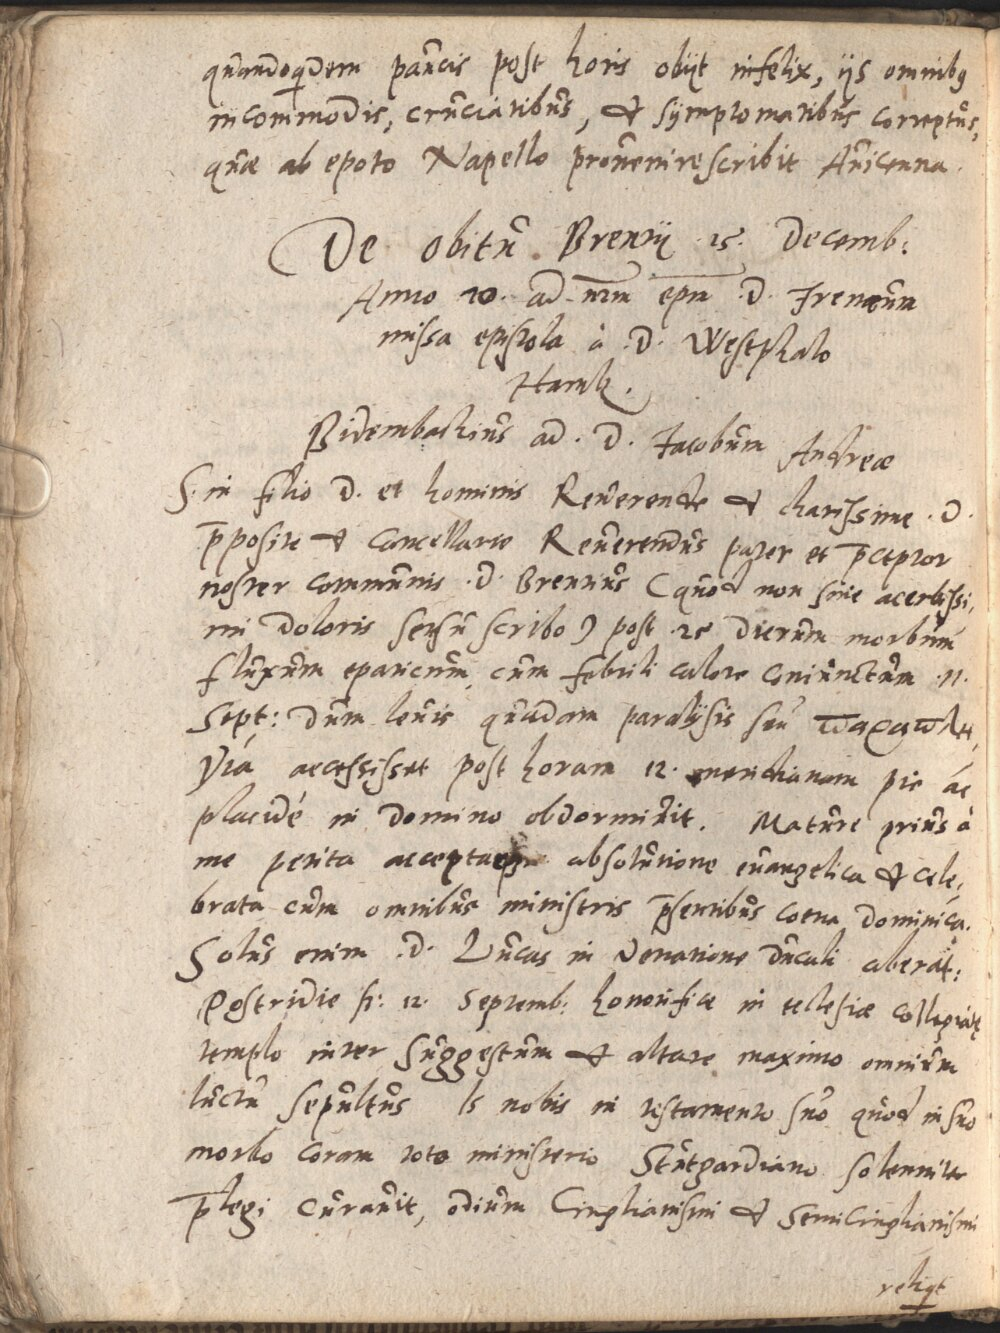 quandoqdem paucis post horis obijt infelix, ijs omnibꝯ
incommodis, cruciatibus, & symptomatibus correptus,
quæ ab epoto Napello prouenire scribit Auicenna.
De obitu Brentij .15. Decemb:
Anno 70. ad nrm epm .D. Frencium
missa epistola à .D. Westphalo
Hamb.
Bidembachius ad .D. Jacobum Andreæ
S. in filio D. et hominis Reuerende & charissime .D.
p̄posite & Cancellarie Reuerendus pater et p̄ceptor
noster communis .D. Brentius (quod non sine acerbissi,
mi doloris sensu scribo) post .25 dierum morbum
fluxum epaticum, cum febrili calore coniunctum .11.
Sept: dum leuis quædam paralysis seu παραπλη,
γία accessisset post horam 12. meridianam pie ac
placidé in domino obdormiuit. Mature prius à
me petita accepta absolutione euangelica & cele,
brata cum omnibus ministris p̄sentibus coena dominica.
Solus enim .D. Lucas in venatione ducali aberat:
Postridie s: 12. Septemb: honorifice in ecclesiæ collegiatę
templo inter suggestum & altare maximo omnium
luctu sepultus Is nobis in testamento suo quod in suo
morbo coram toto ministerio Stutgardiano solenniter
p̄legi curauit, odium Cinglianismi & Semicinglianismi
reliqt